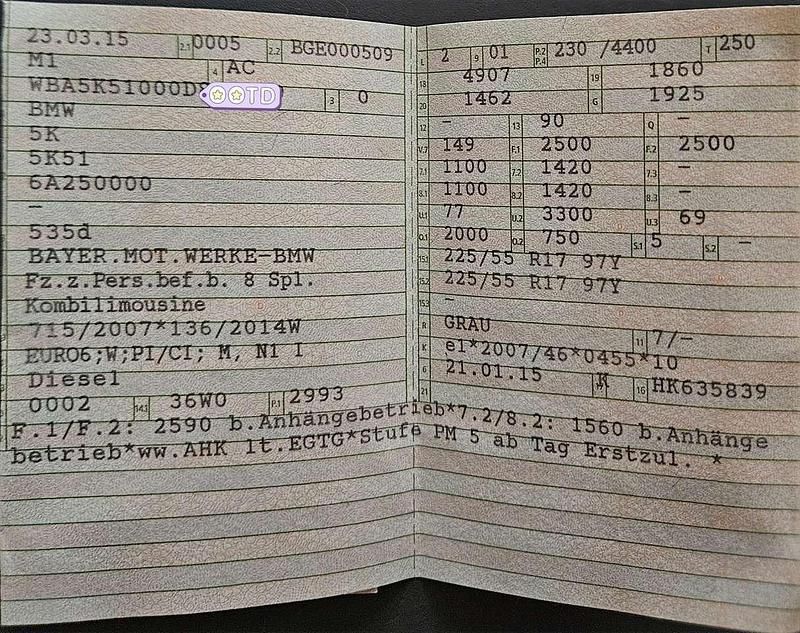 23.03.15 2.1 0005 2.2 BGE000509
M1 4 AC
WBA5K51000D OOTD 3 0
BMW
5K
5K51
6A250000
–
535d
BAYER.MOT.WERKE-BMW
Fz.z.Pers.bef.b. 8 Spl.
Kombilimousine
715/2007*136/2014W
EURO6;W;PI/CI; M, N1 I
Diesel
0002 14.1 36W0 P.1 2993
L 2 9 01 P.2 P.4 230 /4400 T 250
18 4907 19 1860
20 1462 G 1925
12 – 13 90 Q –
V.7 149 F.1 2500 F.2 2500
7.1 1100 7.2 1420 7.3 –
8.1 1100 8.2 1420 8.3 –
U.1 77 U.2 3300 U.3 69
O.1 2000 O.2 750 S.1 5 S.2 –
15.1 225/55 R17 97Y
15.2 225/55 R17 97Y
15.3 –
R GRAU 11 7/–
K e1*2007/46*0455*10
6 21.01.15 16 HK635839
21
F.1/F.2: 2590 b.Anhängebetrieb*7.2/8.2: 1560 b.Anhänge
betrieb*ww.AHK lt.EGTG*Stufe PM 5 ab Tag Erstzul. *